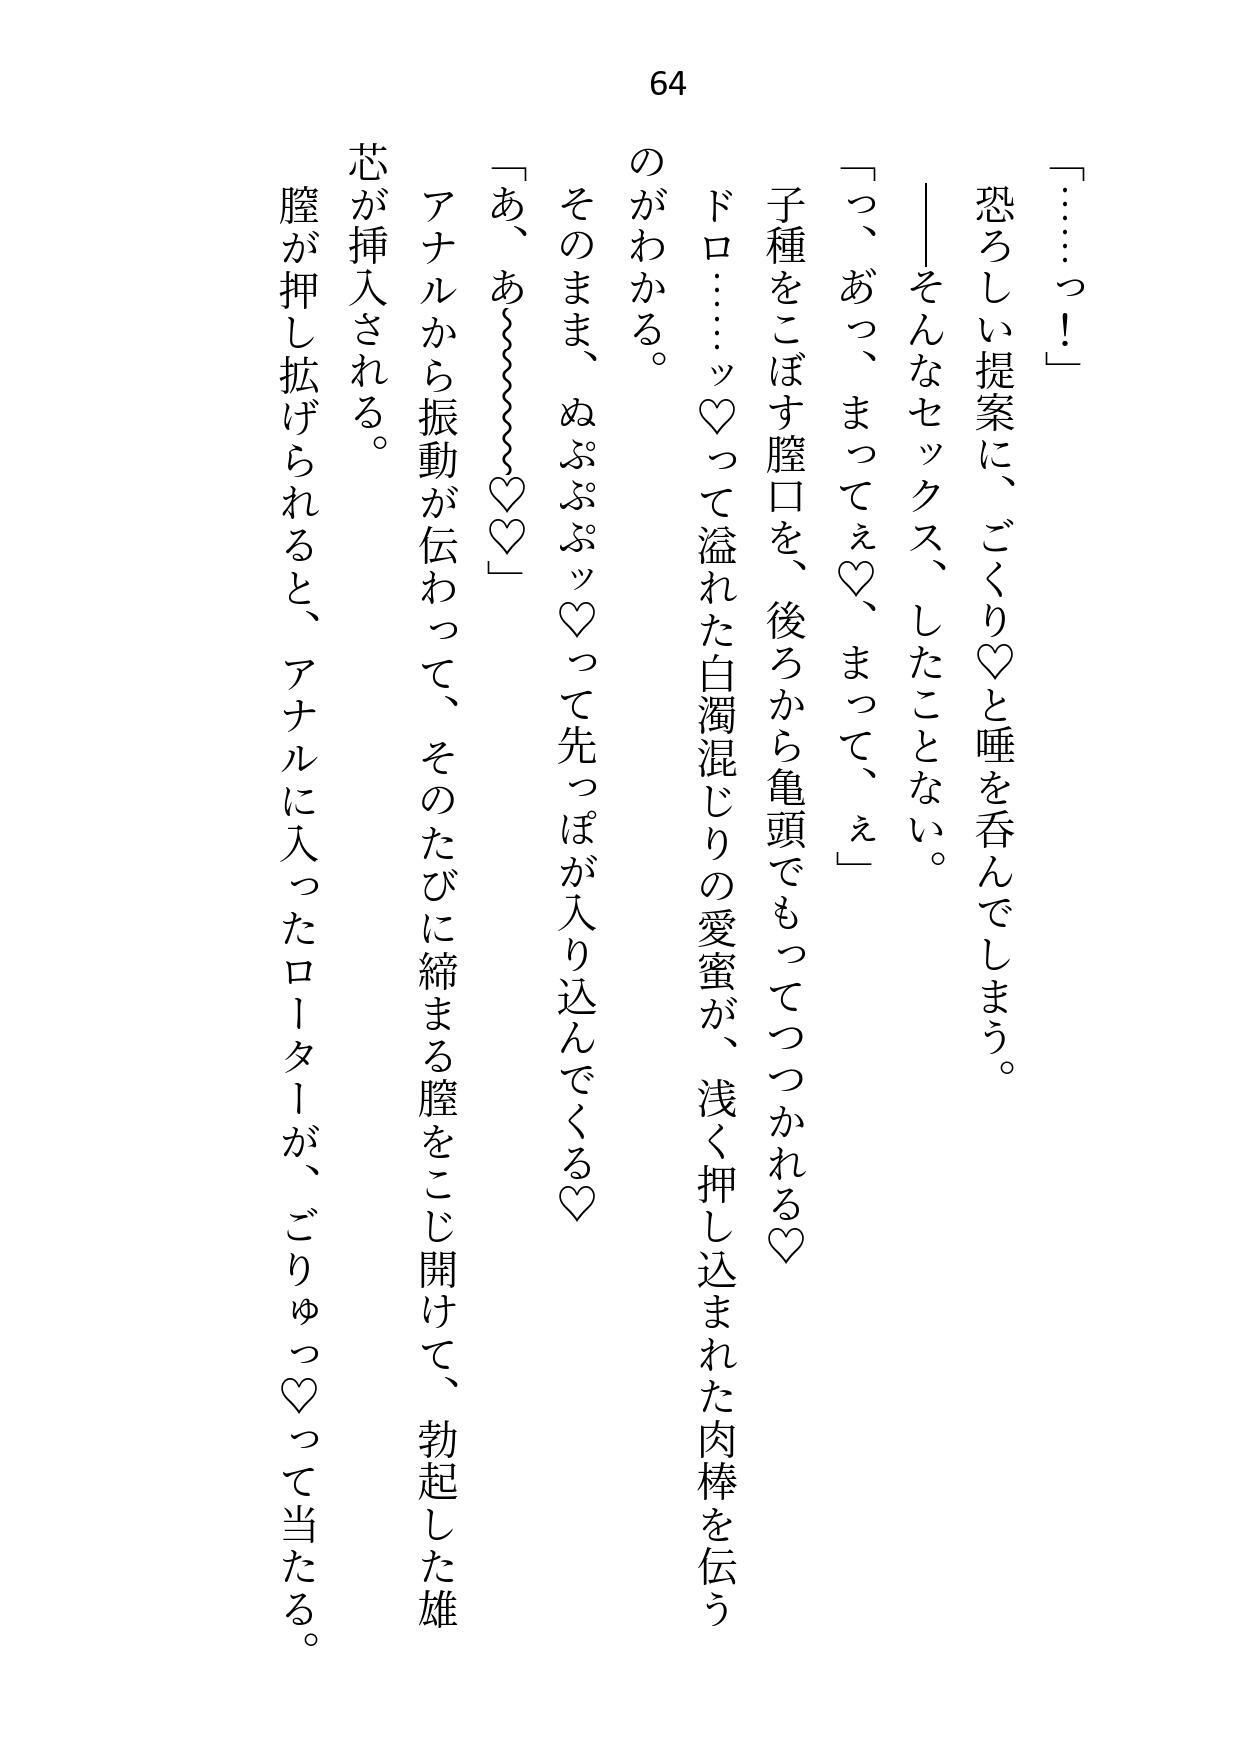 64
「……っ！」
　恐ろしい提案に、ごくり♡と唾を呑んでしまう。
　――そんなセックス、したことない。
「っ、あ゙っ、まってぇ♡、まって、ぇ」
　子種をこぼす膣口を、後ろから亀頭でもってつつかれる♡
　ドロ……ッ♡って溢れた白濁混じりの愛蜜が、浅く押し込まれた肉棒を伝う
のがわかる。
　そのまま、ぬぷぷぷッ♡って先っぽが入り込んでくる♡
「あ、あ～～～～♡♡」
　アナルから振動が伝わって、そのたびに締まる膣をこじ開けて、勃起した雄
芯が挿入される。
　膣が押し拡げられると、アナルに入ったローターが、ごりゅっ♡って当たる。